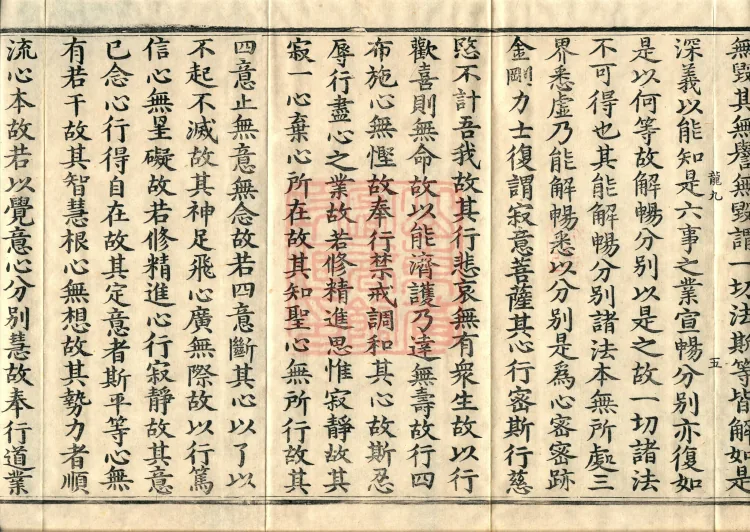 無毀其無譽無毀謂一切法斯等皆解如是
龍九
五
深義以能知是六事之業宣暢分別亦復如
是以何等故解暢分別以是之故一切諸法
不可得也其能解暢分別諸法本無所處三
界悉虛乃能解暢悉以分別是爲心密密跡
金剛力士復謂寂意菩薩其心行密斯行慈
愍不計吾我故其行悲哀無有衆生故以行
歡喜則無命故以能濟護乃達無壽故行四
布施心無慳故奉行禁戒調和其心故斯忍
辱行盡心之業故若修精進思惟寂靜故其
寂一心棄心所在故其知聖心無所行故其
四意止無意無念故若四意斷其心以了以
不起不滅故其神足飛心廣無際故以行篤
信心無罣礙故若修精進心行寂靜故其意
已念心行得自在故其定意者斯平等心無
有若干故其智慧根心無想故其勢力者順
流心本故若以覺意心分別慧故奉行道業